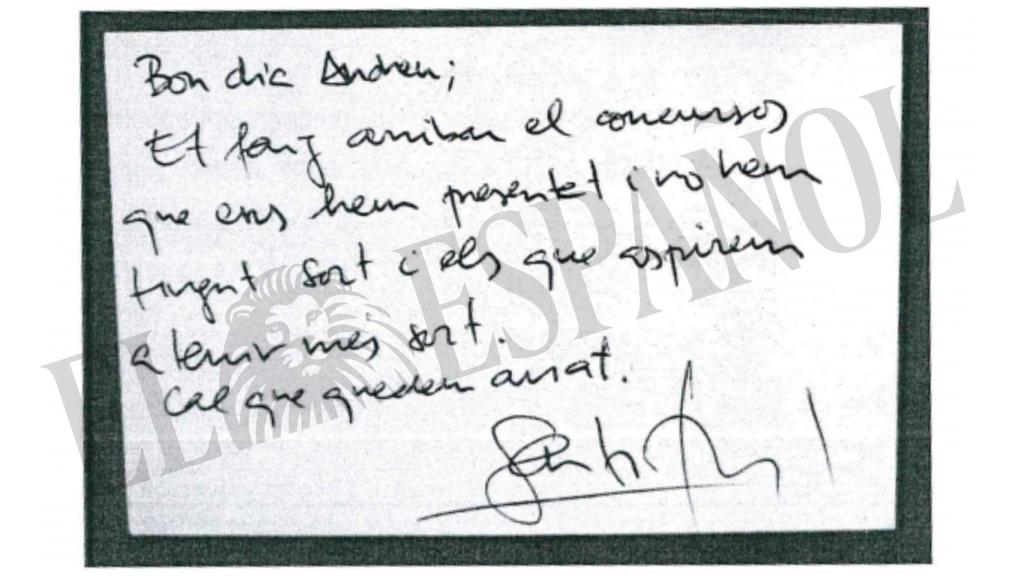 Bon dia Andreu;
Et faig arribar el concursos
que ens hem presentat i no hem
tingut sort i els que aspirem
a tenir més sort.
Cal que quedem aviat.
EL ESPAÑOL